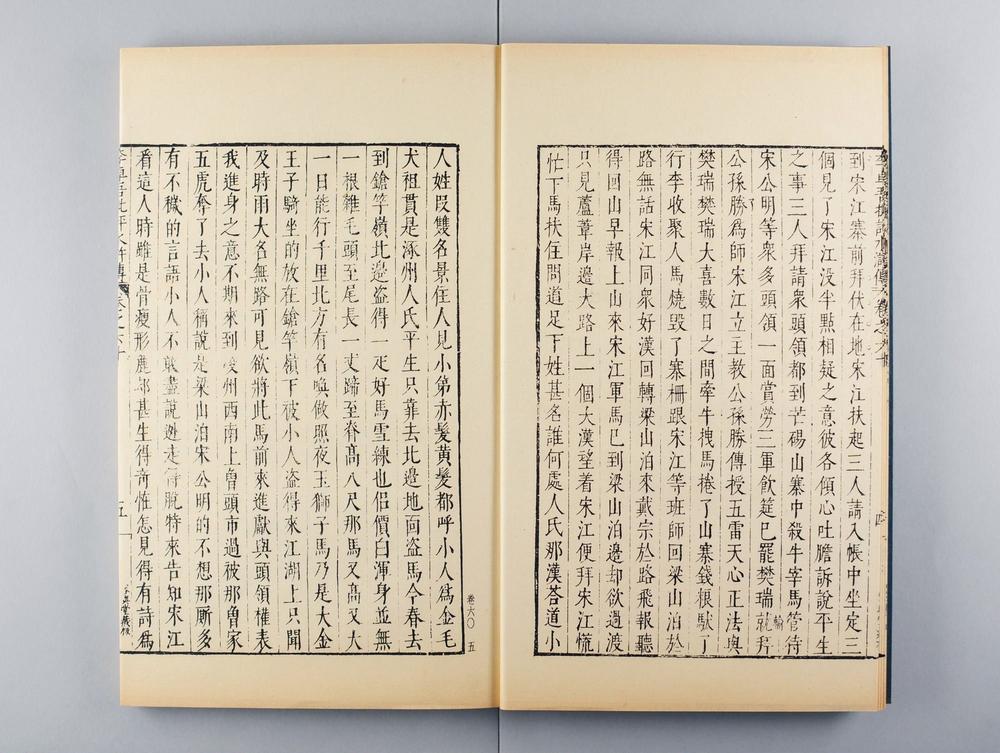 到宋江寨前拜伏在地宋江扶起三人請入帳中坐定三
個見了宋江没半點相疑之意彼各傾心吐膽訴說平生
之事三人拜請衆頭領都到芒碭山寨中殺牛宰馬管待
宋公明等衆多頭領一面賞勞三軍飲筵已罷樊瑞就拜
公孫勝爲師宋江立主教公孫勝傳授五雷天心正法與
樊瑞樊瑞大喜數日之間牽牛拽馬捲了山寨錢粮馱了
行李收聚人馬燒毀了寨柵跟宋江等班師回梁山泊於
路無話宋江同衆好漢回轉梁山泊來戴宗於路飛報聽
得回山早報上山來宋江軍馬已到梁山泊邊却欲過渡
只見蘆葦岸邊大路上一個大漢望着宋江便拜宋江慌
忙下馬扶住問道足下姓甚名誰何處人氏那漢荅道小
人姓叚雙名景住人見小弟赤髮黃髮都呼小人爲金毛
犬祖貫是涿州人氏平生只靠去北邊地面盗馬今春去
到鎗竿嶺北邊盗得一疋好馬雪練也佀價白渾身並無
一根雜毛頭至尾長一丈蹄至脊高八尺那馬又高又大
一日能行千里北方有名喚做照夜玉獅子馬乃是大金
王子騎坐的放在鎗竿嶺下被小人盗得來江湖上只聞
及時雨大名無路可見欲將此馬前來進獻與頭領權表
我進身之意不期來到凌州西南上曾頭市過被那曾家
五虎奪了去小人稱說是梁山泊宋公明的不想那厮多
有不穢的言語小人不敢盡說逃走得脫特來告知宋江
看這人時雖是骨瘦形麄却甚生得奇怪怎見得有詩爲
卷六〇 五